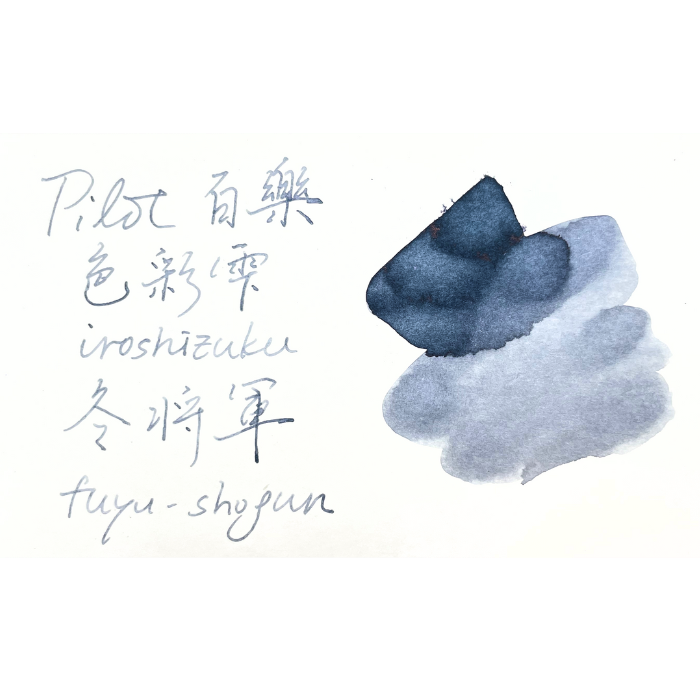 Pilot 百樂
色彩雫
iroshizuku
冬将軍
fuyu-shogun